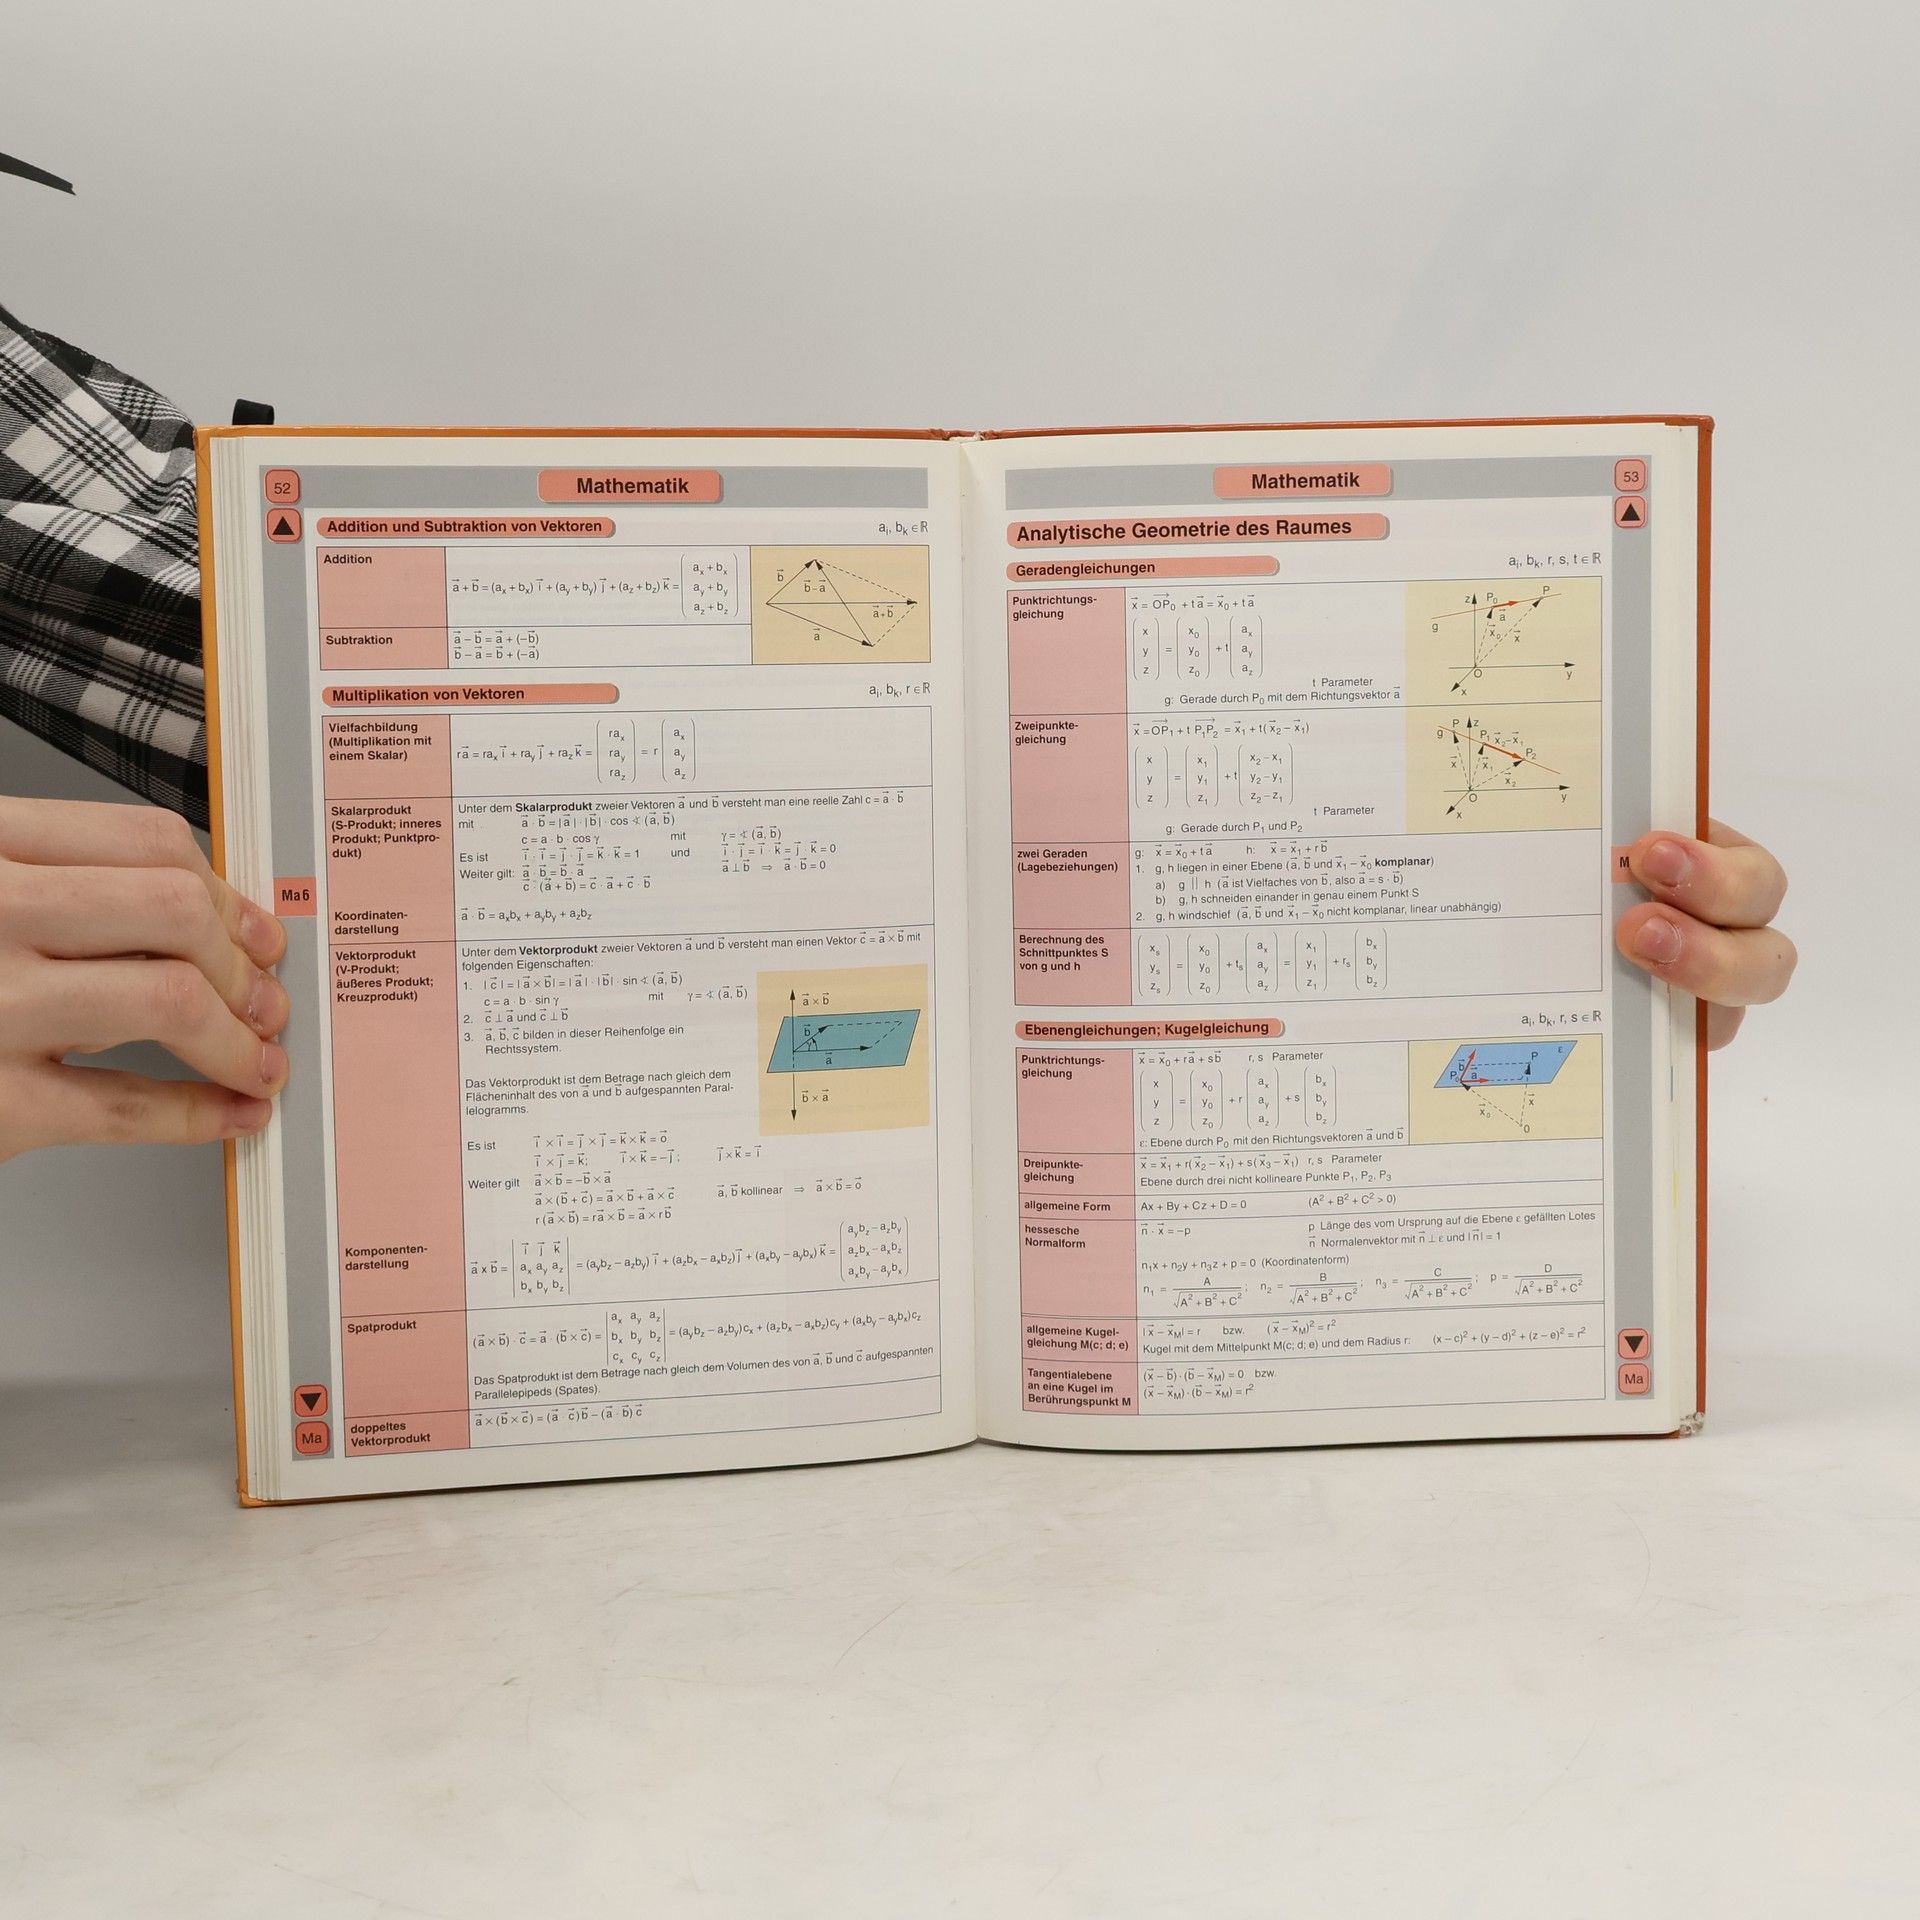 52
Mathematik
Addition und Subtraktion von Vektoren
aᵢ, bₖ ∈ ℝ
Addition
a⃗ + b⃗ = (aₓ + bₓ) i⃗ + (a_y + b_y) j⃗ + (a_z + b_z) k⃗ =
aₓ + bₓ
a_y + b_y
a_z + b_z
b⃗
b⃗ – a⃗
a⃗ + b⃗
a⃗
Subtraktion
a⃗ – b⃗ = a⃗ + (–b⃗)
b⃗ – a⃗ = b⃗ + (–a⃗)
Multiplikation von Vektoren
aᵢ, bₖ, r ∈ ℝ
Vielfachbildung
(Multiplikation mit
einem Skalar)
r a⃗ = raₓ i⃗ + ra_y j⃗ + ra_z k⃗ =
raₓ aₓ
ra_y = r a_y
ra_z a_z
Skalarprodukt
(S-Produkt; inneres
Produkt; Punktpro-
dukt)
Unter dem Skalarprodukt zweier Vektoren a⃗ und b⃗ versteht man eine reelle Zahl c = a⃗ · b⃗
mit a⃗ · b⃗ = |a⃗| · |b⃗| · cos ∢ (a⃗, b⃗)
c = a · b · cos γ mit γ = ∢ (a⃗, b⃗)
Es ist i⃗ · i⃗ = j⃗ · j⃗ = k⃗ · k⃗ = 1 und i⃗ · j⃗ = i⃗ · k⃗ = j⃗ · k⃗ = 0
Weiter gilt: a⃗ · b⃗ = b⃗ · a⃗ a⃗ ⊥ b⃗ ⇒ a⃗ · b⃗ = 0
c⃗ · (a⃗ + b⃗) = c⃗ · a⃗ + c⃗ · b⃗
Ma 6
Koordinaten-
darstellung
a⃗ · b⃗ = aₓbₓ + a_yb_y + a_zb_z
Vektorprodukt
(V-Produkt;
äußeres Produkt;
Kreuzprodukt)
Unter dem Vektorprodukt zweier Vektoren a⃗ und b⃗ versteht man einen Vektor c⃗ = a⃗ × b⃗ mit
folgenden Eigenschaften:
1. |c⃗| = |a⃗ × b⃗| = |a⃗| · |b⃗| · sin ∢ (a⃗, b⃗)
c = a · b · sin γ mit γ = ∢ (a⃗, b⃗)
2. c⃗ ⊥ a⃗ und c⃗ ⊥ b⃗
3. a⃗, b⃗, c⃗ bilden in dieser Reihenfolge ein
Rechtssystem.
a⃗ × b⃗
b⃗
γ
a⃗
b⃗ × a⃗
Das Vektorprodukt ist dem Betrage nach gleich dem
Flächeninhalt des von a⃗ und b⃗ aufgespannten Paral-
lelogramms.
Es ist i⃗ × i⃗ = j⃗ × j⃗ = k⃗ × k⃗ = o⃗
i⃗ × j⃗ = k⃗; i⃗ × k⃗ = –j⃗; j⃗ × k⃗ = i⃗
Weiter gilt a⃗ × b⃗ = –b⃗ × a⃗
a⃗ × (b⃗ + c⃗) = a⃗ × b⃗ + a⃗ × c⃗ a⃗, b⃗ kollinear ⇒ a⃗ × b⃗ = o⃗
r (a⃗ × b⃗) = r a⃗ × b⃗ = a⃗ × r b⃗
Komponenten-
darstellung
i⃗ j⃗ k⃗
a⃗ x b⃗ = aₓ a_y a_z = (a_yb_z – a_zb_y) i⃗ + (a_zbₓ – aₓb_z) j⃗ + (aₓb_y – a_ybₓ) k⃗ =
bₓ b_y b_z
a_yb_z – a_zb_y
a_zbₓ – aₓb_z
aₓb_y – a_ybₓ
Spatprodukt
aₓ a_y a_z
(a⃗ × b⃗) · c⃗ = a⃗ · (b⃗ × c⃗) = bₓ b_y b_z = (a_yb_z – a_zb_y) cₓ + (a_zbₓ – aₓb_z) c_y + (aₓb_y – a_ybₓ) c_z
cₓ c_y c_z
Das Spatprodukt ist dem Betrage nach gleich dem Volumen des von a⃗, b⃗ und c⃗ aufgespannten
Parallelepipeds (Spates).
doppeltes
Vektorprodukt
a⃗ × (b⃗ × c⃗) = (a⃗ · c⃗) b⃗ – (a⃗ · b⃗) c⃗
Ma
53
Mathematik
Analytische Geometrie des Raumes
Geradengleichungen
aᵢ, bₖ, r, s, t ∈ ℝ
Punktrichtungs-
gleichung
x⃗ = OP₀ + t a⃗ = x⃗₀ + t a⃗
x x₀ aₓ
y = y₀ + t a_y
z z₀ a_z
t Parameter
g: Gerade durch P₀ mit dem Richtungsvektor a⃗
z P₀ P
g a⃗
x⃗₀ x⃗
O y
x
Zweipunkte-
gleichung
x⃗ = OP₁ + t P₁P₂ = x⃗₁ + t(x⃗₂ – x⃗₁)
x x₁ x₂ – x₁
y = y₁ + t y₂ – y₁
z z₁ z₂ – z₁
t Parameter
g: Gerade durch P₁ und P₂
P z
g P₁ x⃗₂–x⃗₁
P₂
x⃗ x⃗₁ x⃗₂
O y
x
zwei Geraden
(Lagebeziehungen)
g: x⃗ = x⃗₀ + t a⃗ h: x⃗ = x⃗₁ + r b⃗
1. g, h liegen in einer Ebene (a⃗, b⃗ und x⃗₁ – x⃗₀ komplanar)
a) g || h (a⃗ ist Vielfaches von b⃗, also a⃗ = s · b⃗)
b) g, h schneiden einander in genau einem Punkt S
2. g, h windschief (a⃗, b⃗ und x⃗₁ – x⃗₀ nicht komplanar, linear unabhängig)
M
Berechnung des
Schnittpunktes S
von g und h
xₛ x₀ aₓ x₁ bₓ
yₛ = y₀ + tₛ a_y = y₁ + rₛ b_y
zₛ z₀ a_z z₁ b_z
Ebenengleichungen; Kugelgleichung
aᵢ, bₖ, r, s ∈ ℝ
Punktrichtungs-
gleichung
x⃗ = x⃗₀ + r a⃗ + s b⃗ r, s Parameter
x x₀ aₓ bₓ
y = y₀ + r a_y + s b_y
z z₀ a_z b_z
ε: Ebene durch P₀ mit den Richtungsvektoren a⃗ und b⃗
ε
b⃗ P
P₀ a⃗
x⃗₀ x⃗
0
Dreipunkte-
gleichung
x⃗ = x⃗₁ + r(x⃗₂ – x⃗₁) + s(x⃗₃ – x⃗₁) r, s Parameter
Ebene durch drei nicht kollineare Punkte P₁, P₂, P₃
allgemeine Form
Ax + By + Cz + D = 0 (A² + B² + C² > 0)
hessesche
Normalform
n⃗ · x⃗ = –p
p Länge des vom Ursprung auf die Ebene ε gefällten Lotes
n⃗ Normalenvektor mit n⃗ ⊥ ε und |n⃗| = 1
n₁x + n₂y + n₃z + p = 0 (Koordinatenform)
n₁ = A/√(A² + B² + C²); n₂ = B/√(A² + B² + C²); n₃ = C/√(A² + B² + C²); p = D/√(A² + B² + C²)
allgemeine Kugel-
gleichung M(c; d; e)
|x⃗ – x⃗_M| = r bzw. (x⃗ – x⃗_M)² = r²
Kugel mit dem Mittelpunkt M(c; d; e) und dem Radius r: (x – c)² + (y – d)² + (z – e)² = r²
Tangentialebene
an eine Kugel im
Berührungspunkt M
(x⃗ – b⃗) · (b⃗ – x⃗_M) = 0 bzw.
(x⃗ – x⃗_M) · (b⃗ – x⃗_M) = r²
Ma